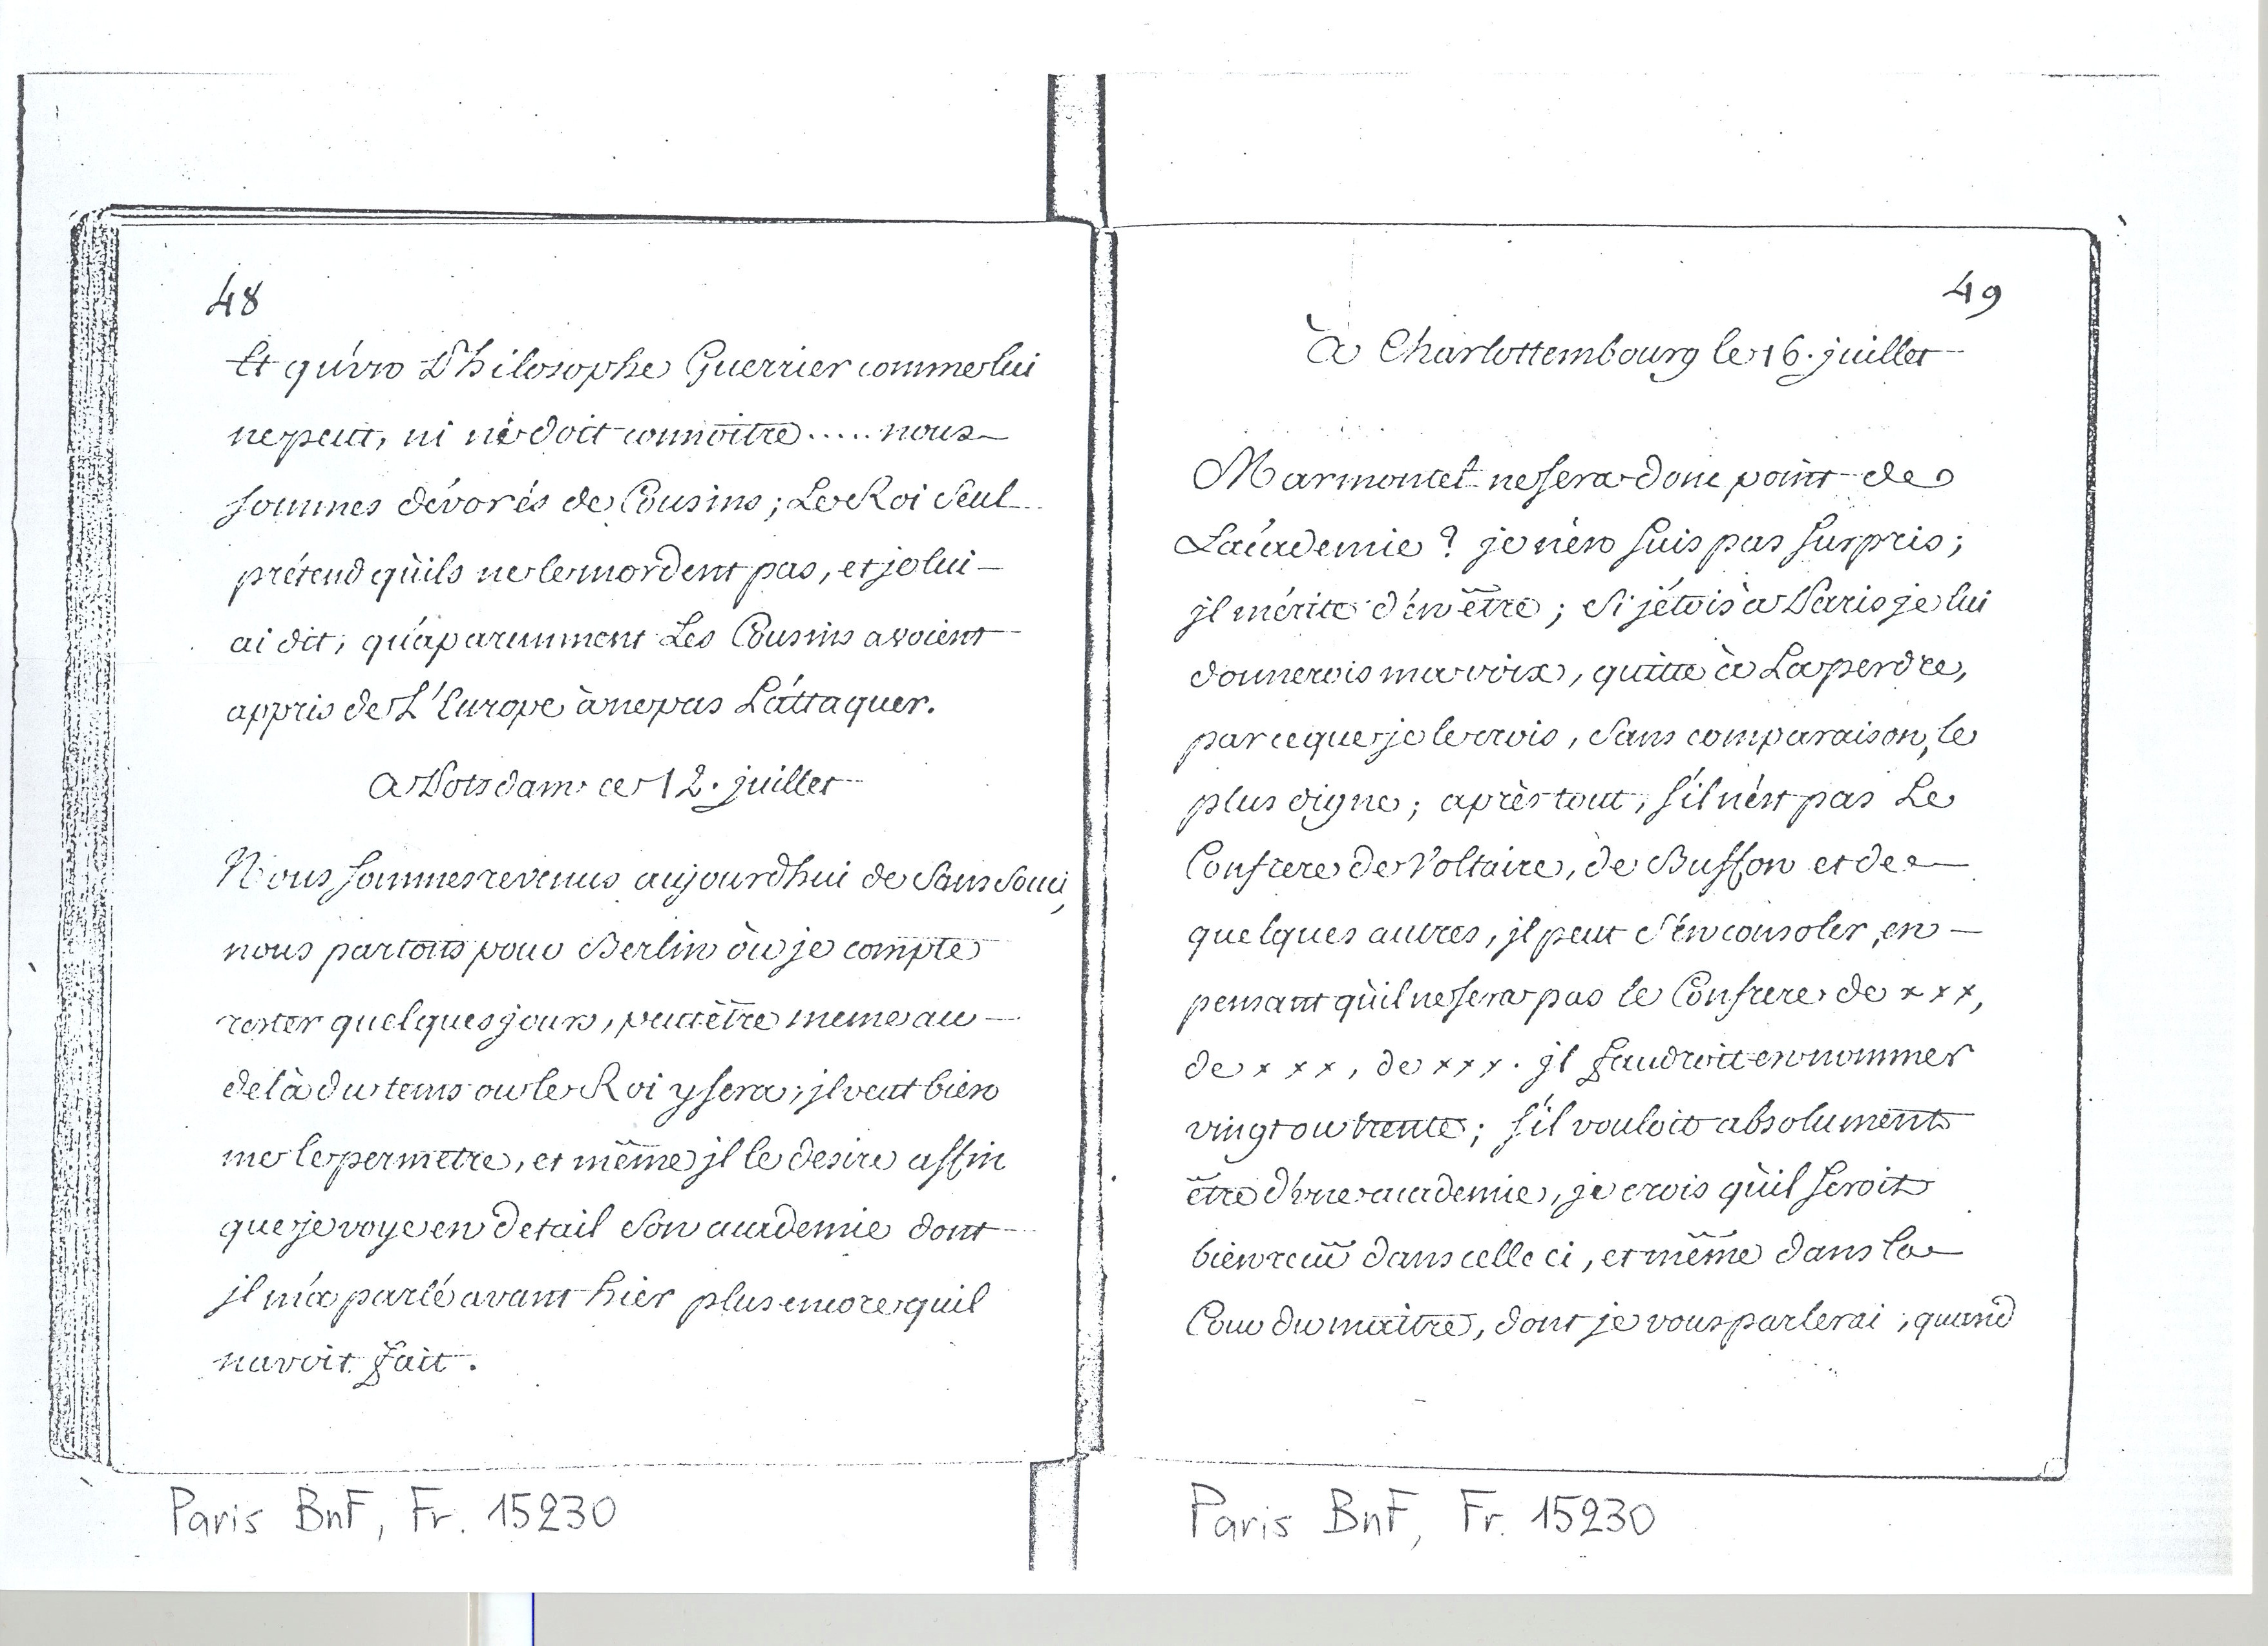 48
Et qu'un Philosophe Guerrier comme lui
ne peut, ni ne doit connoitre ..... nous
sommes dévorés de Cousins ; Le Roi Seul
prétend qu'ils ne le mordent pas, et je lui
ai dit, qu'aparemment Les Cousins avoient
appris de L'Europe à ne pas L'attaquer.
a Potsdam ce 12. juillet
Nous sommes revenus aujourdhui de Sans Souci,
nous partons pour Berlin où je compte
rester quelques jours, peut être meme au
delà du tems ou le Roi y sera, jl veut bien
me le permetre, et même jl le desire affin
que je voye en detail Son academie dont
jl m'a parlé avant hier plus encore quil
navoit fait.
Paris BnF, Fr. 15230
49
à Charlottembourg le 16. juillet
Marmontel ne sera donc point de
L'academie ? je n'en suis pas surpris ;
jl mérite d'en être ; Si j'étois à Paris je lui
donnerois ma voix, quitte à La perdre,
parceque je le crois, Sans comparaison, le
plus digne ; après tout, s'il n'est pas Le
Confrere de Voltaire, de Buffon et de
quelques autres, jl peut S'en consoler, en
pensant qu'il ne sera pas le Confrere de x x x,
de x x x, de x x x. jl faudroit en nommer
vingt ou trente ; s'il vouloit absolument
être d'une academie, je crois qu'il seroit
bien reçu dans celle ci, et même dans la
Cour du maître, dont je vous parlerai, quand
Paris BnF, Fr. 15230